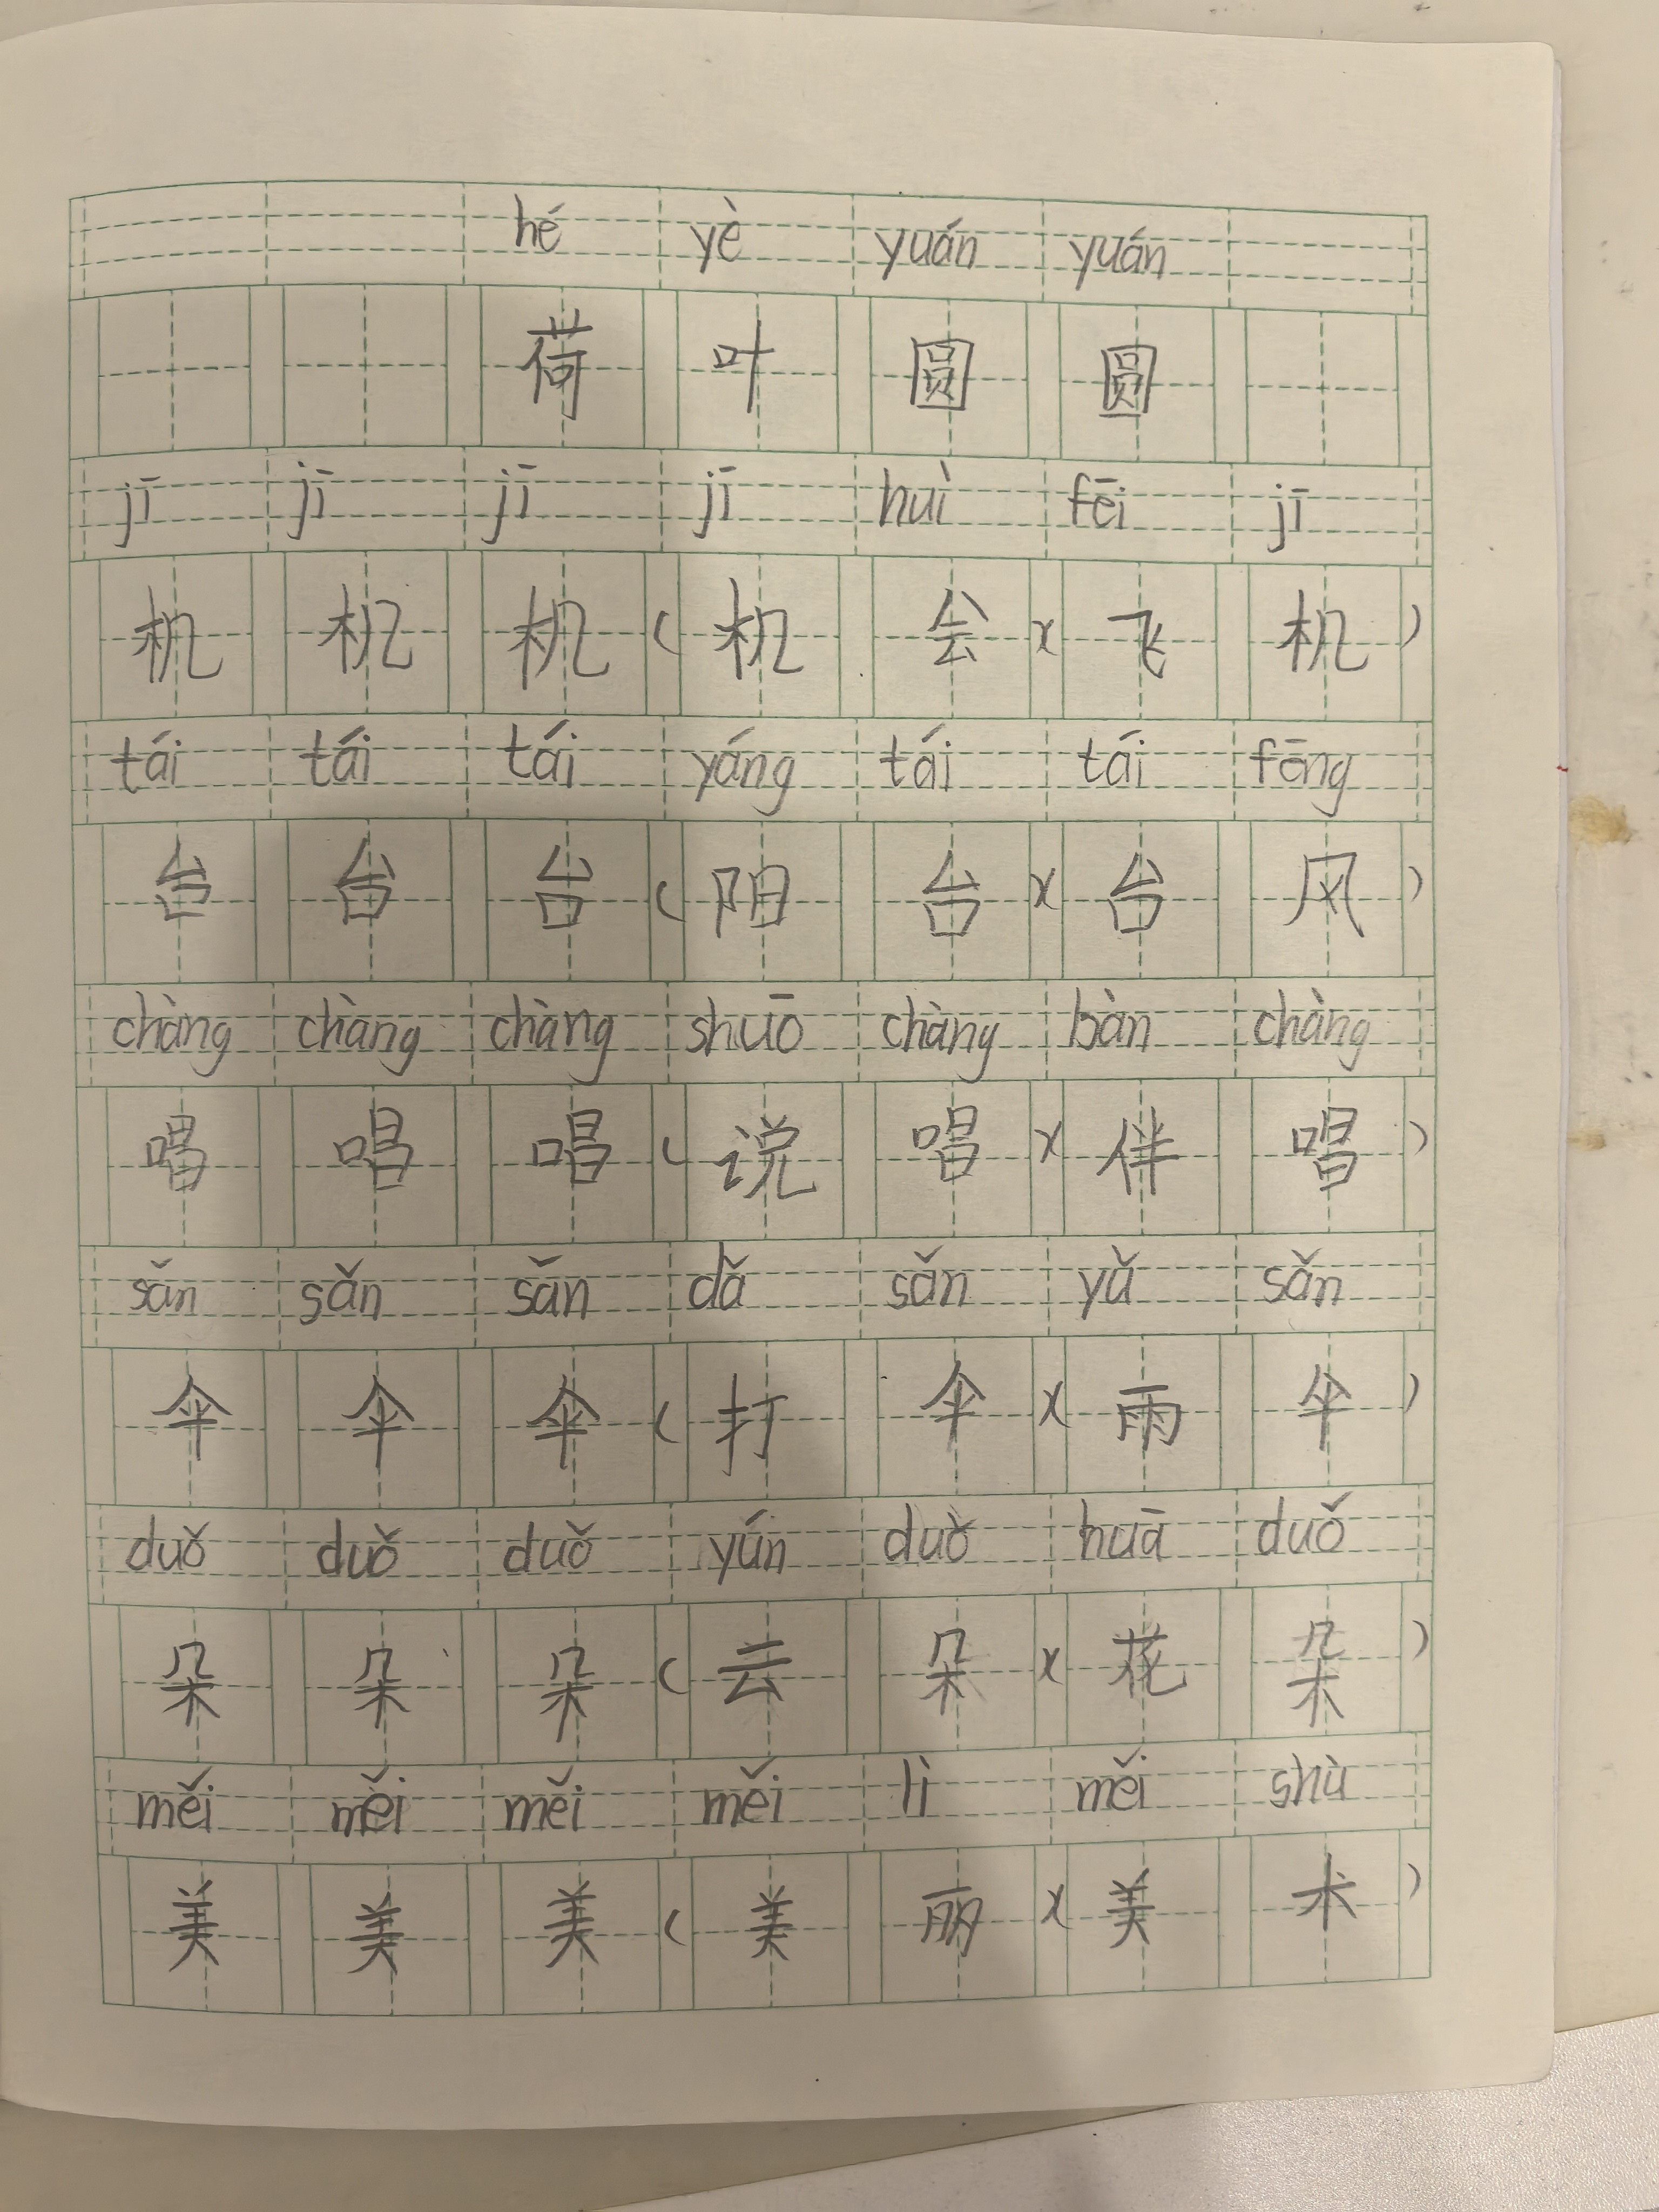 hé yè yuán yuán
荷叶圆圆
jī jī jī jī huì fēi jī
机机机(机会)(飞机)
tái tái tái yáng tái tái fēng
台台台(阳台)(台风)
chàng chàng chàng shuō chàng bàn chàng
唱唱唱(说唱)(伴唱)
sǎn sǎn sǎn dǎ sǎn yǔ sǎn
伞伞伞(打伞)(雨伞)
duǒ duǒ duǒ yún duǒ huā duǒ
朵朵朵(云朵)(花朵)
měi měi měi měi lì měi shù
美美美(美丽)(美术)